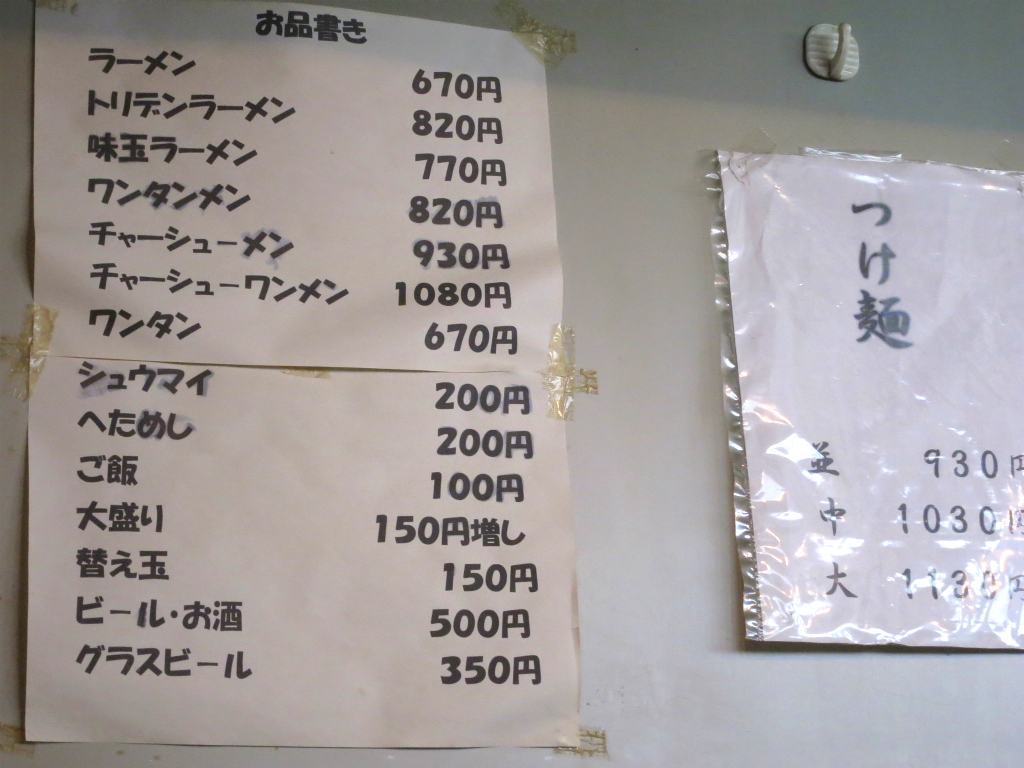 お品書き
ラーメン 670円
トリデンラーメン 820円
味玉ラーメン 770円
ワンタンメン 820円
チャーシューメン 930円
チャーシューワンメン 1080円
ワンタン 670円
シュウマイ 200円
へためし 200円
ご飯 100円
大盛り 150円増し
替え玉 150円
ビール・お酒 500円
グラスビール 350円
つけ麺
並 930円
中 1030円
大 1130円